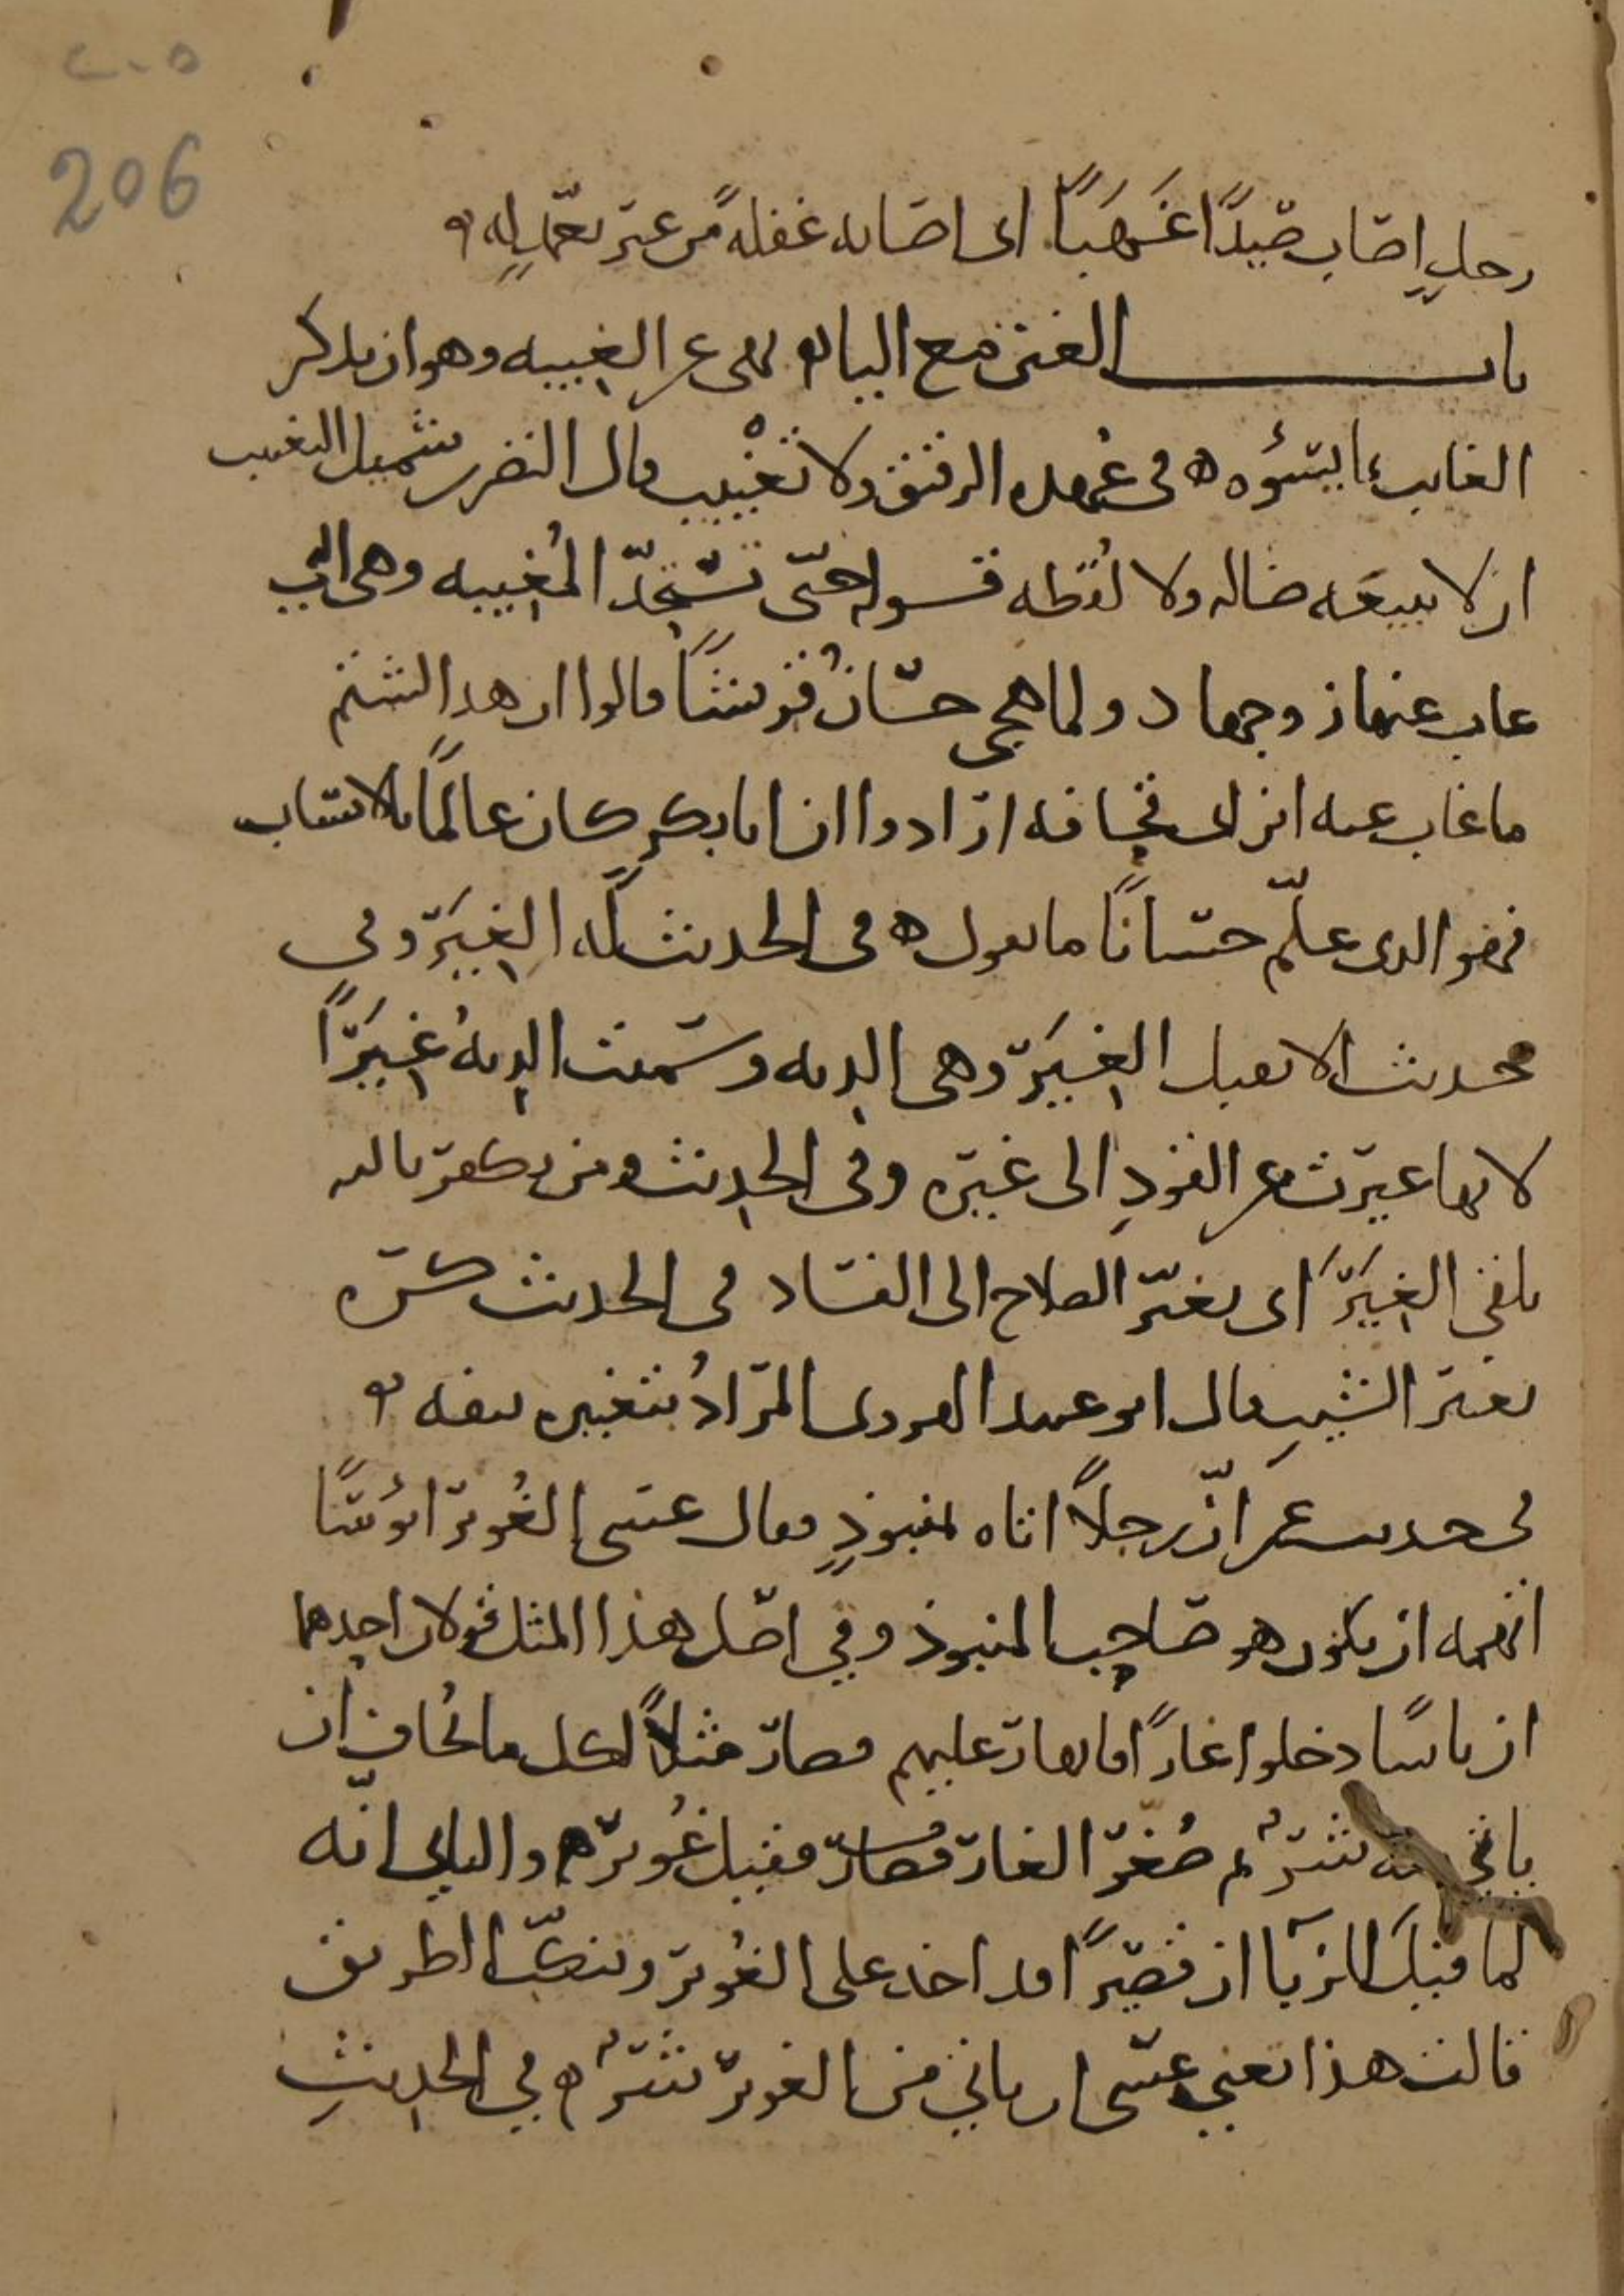 ٢٠٥
206
رجلٍ اصاب صيدًا غَهَبًا اى اصابه غفلةً من غير تعمّدٍ له
باب الغين مع الياء نهى عن الغيبه وهو ان يذكر
الغايب بما يسؤوه ه فى عهده الرقيق ولا تغْييب قال النضر بن شميل التغييب
ان لا يبيعَه ضاله ولا لُقَطه قـوله حتّى تستحِدّ المُغِيبه وهى التي
غاب عنها زوجها د ولما هجى حسّانُ قريشًا قالوا ان هذا لشتم
ما غاب عنه ابن ابى قحافه ارادوا ان ابا بكرٍ كان عالمًا بالانساب
فهو الذى علّم حسانًا ما يقول ه فى الحديث له الغِيَر وفي
حديث الا تقبل الغِيَر وهى الديه وسميت الديهُ غِيَرًا
لانها غيرت عن القودِ الى غيره وفى الحديث ومن يكفر بالله
يلقى الغِيَرَ اى تغيّر الصلاح الى الفساد فى الحديث كره
تغيير الشيبِ قال ابو عبيد الهروى المرادُ بتغييره نتفه
فى حديث عمر انّ رجلاً اتاه بمنبوذٍ فقال عسى الغُوير ابؤسًا
اتهمه ان يكون هو صاحب المنبوذ وفي اصل هذا المثل قولان احدهما
ان ناسًا دخلوا غارًا فانهار عليهم فصار مثلاً لكل ما يُخاف ان
ياتي منه شرٌ ثم صُغّر الغار فصار فقيل غُوير ه والثاني انّه
لما قيلَ للزبّا ان قصيرًا قد اخذ على الغُوير وتنكّب الطريق
قالت هذا تعني عسى ان ياتي من الغوير شرٌ ه في الحديثِ